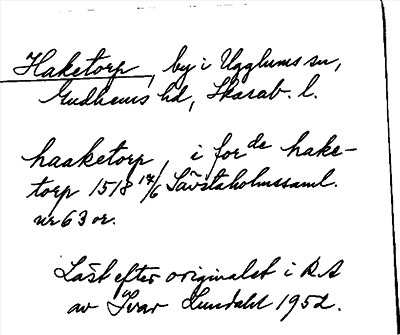 Haketorp, by i Ugglums sn,
Gudhems hd, Skarab. l.
haaketorp, i for de hake-
torp 1518 14/6 Sävstaholmssaml.
nr 63 or.
Läst efter originalet i R.A
av Ivar Lundahl 1952.